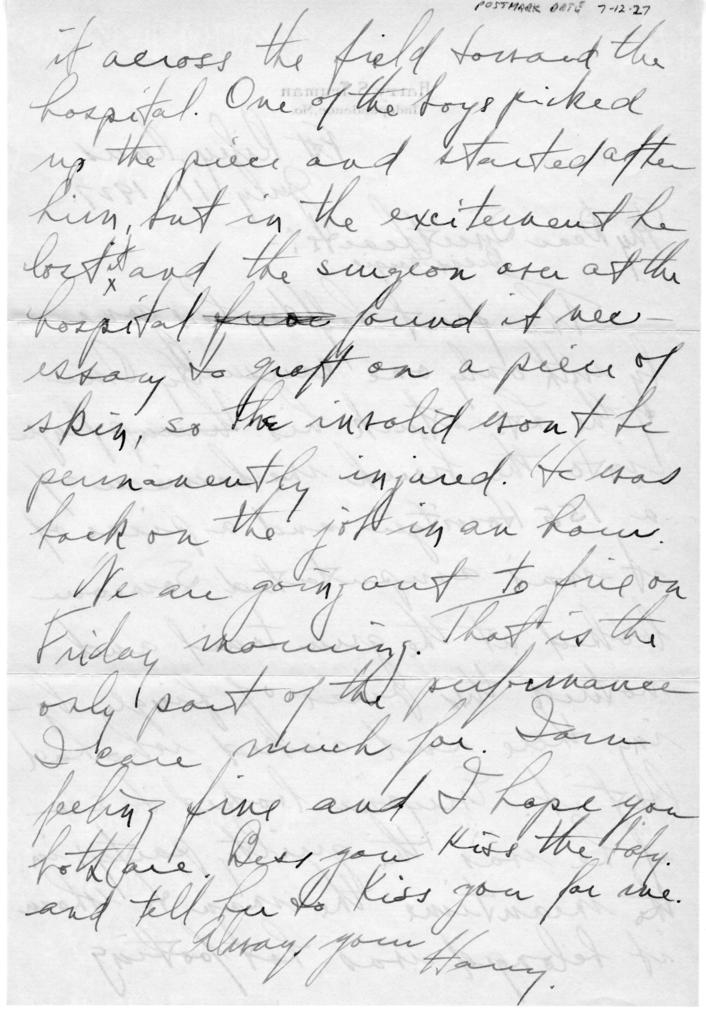 POSTMARK DATE 7-12-27
it across the field toward the
hospital. One of the boys picked
up the piece and started after
him, but in the excitement he
lost it and the surgeon over at the
hospital found it nec-
essary to graft on a piece of
skin, so the invalid wont be
permanently injured. He was
back on the job in an hour.
We are going out to fire on
Friday morning. That is the
only part of the performance
I care much for. I am
feeling fine and I hope you
both are. Bess you Kiss the baby.
and tell her to Kiss you for me.
Always your
Harry.